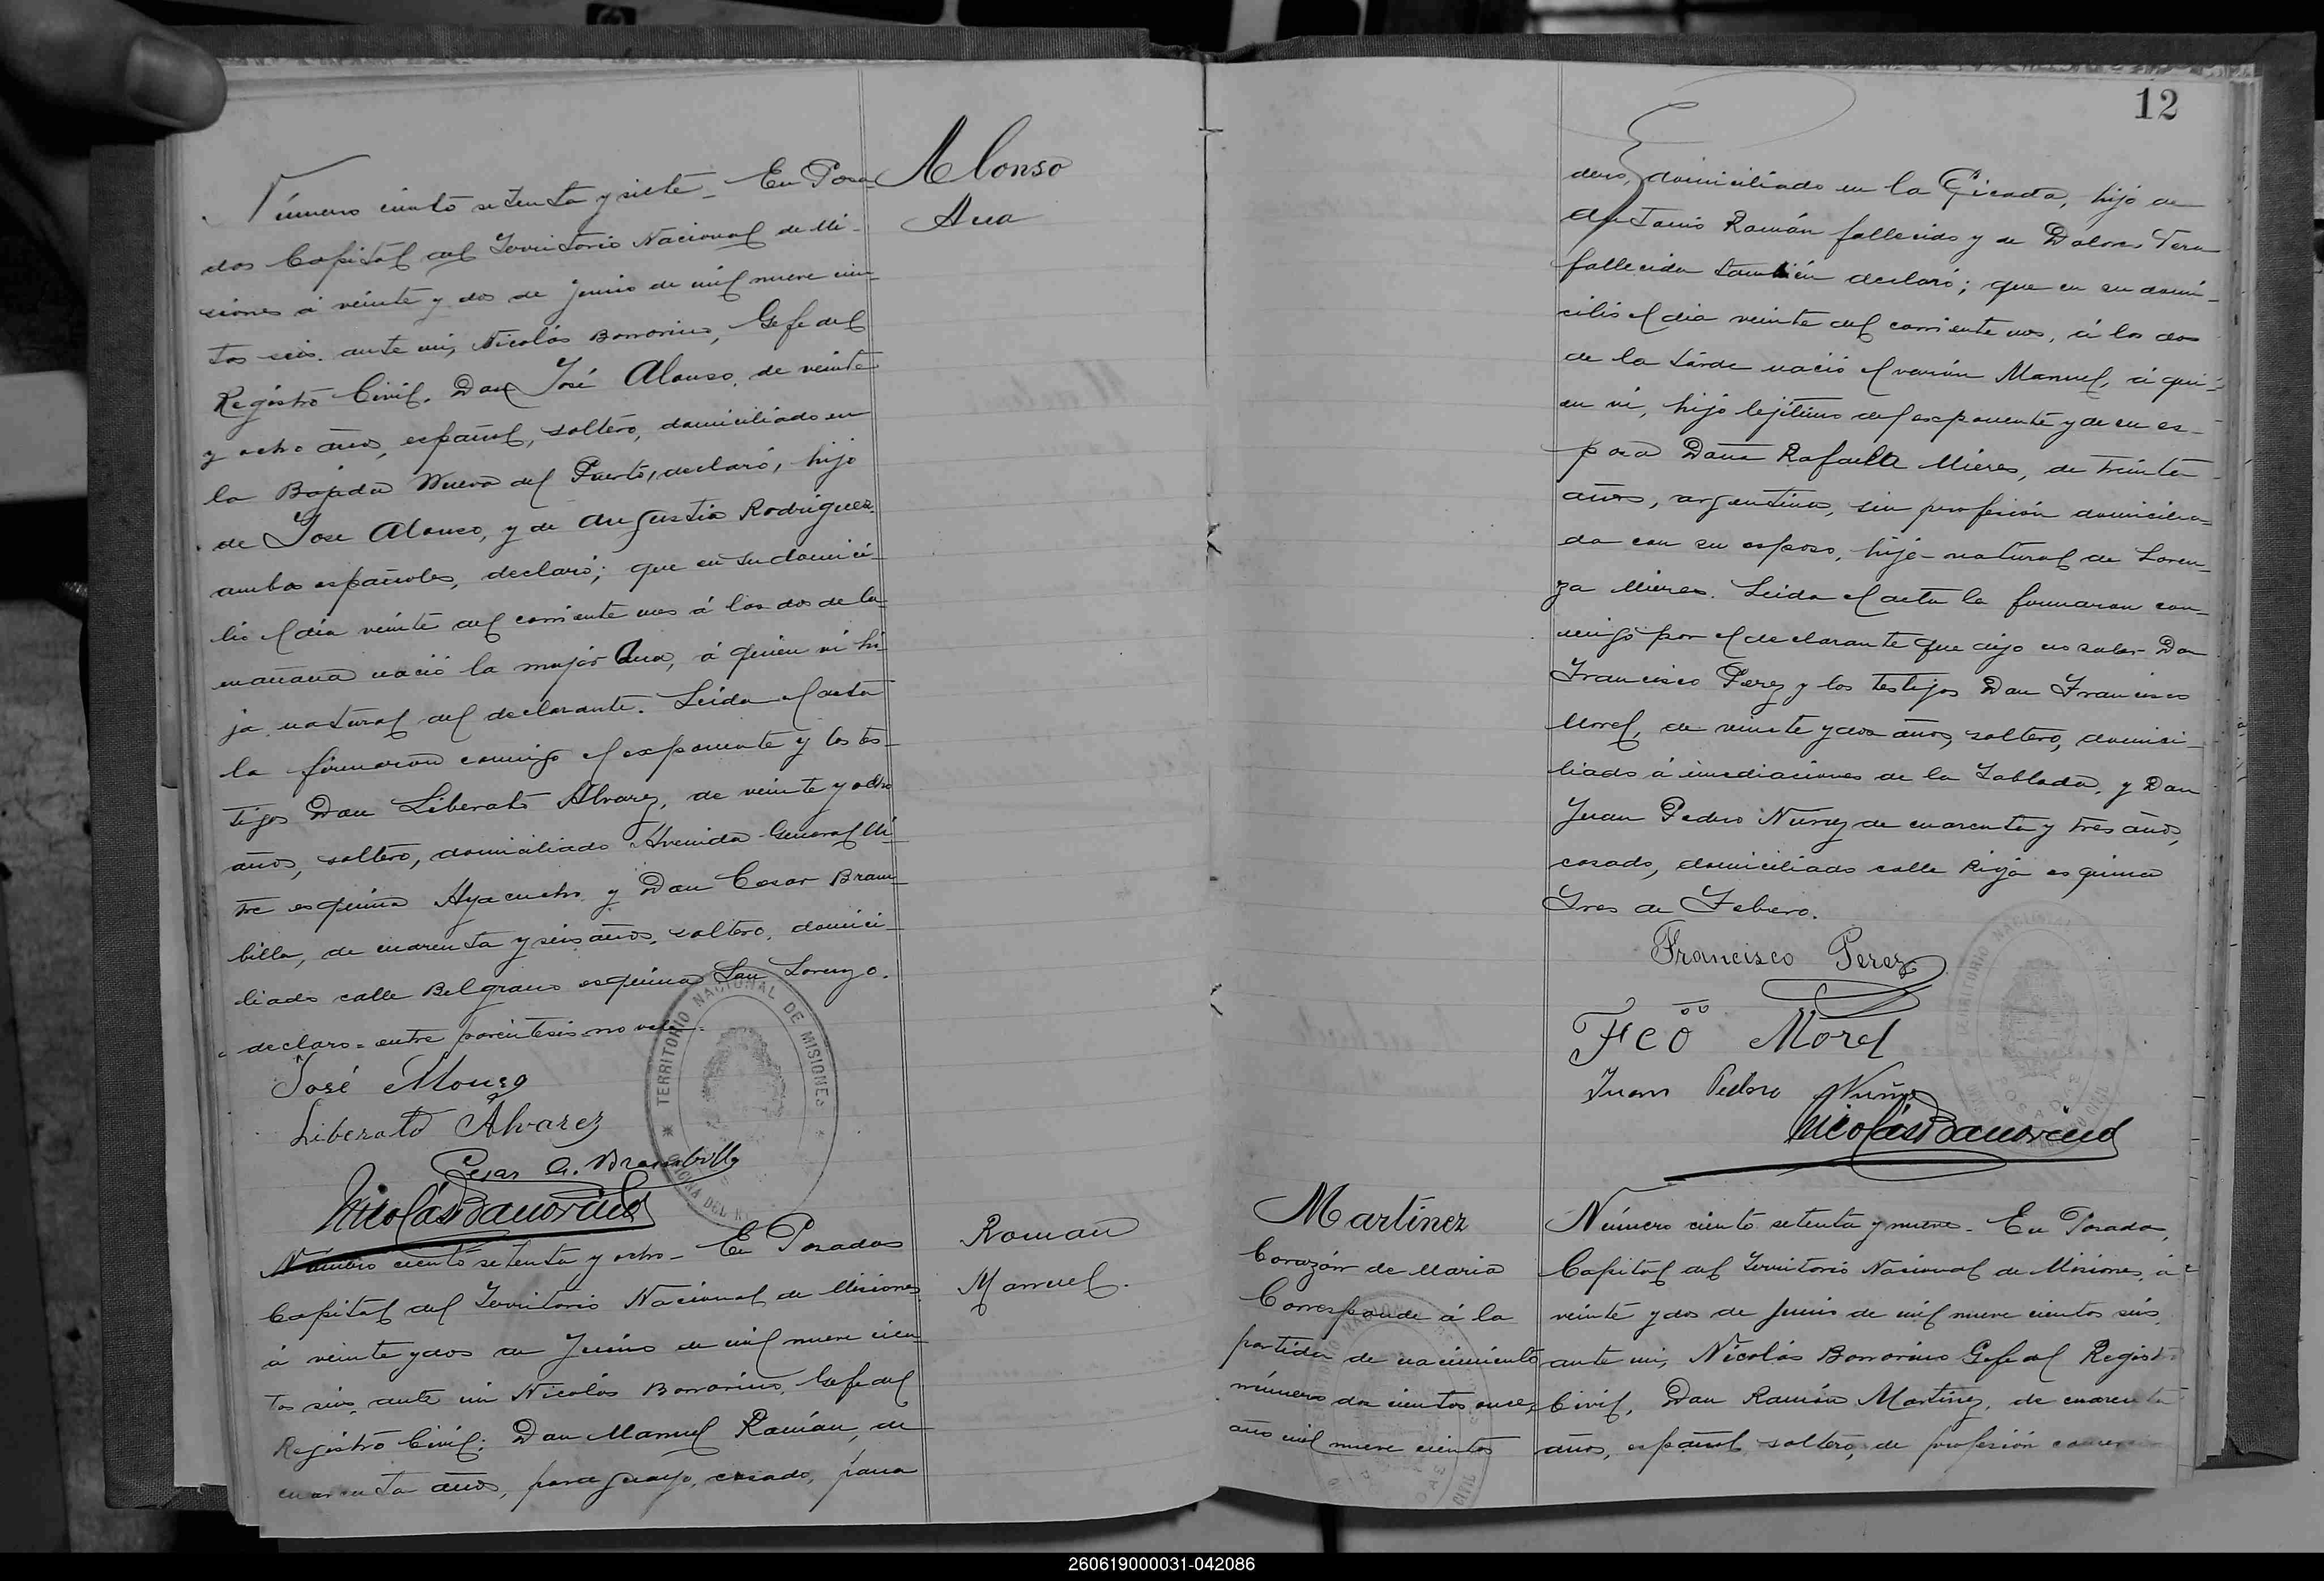 Alonso
Ana
Número ciento setenta y siete - En Posa-
das Capital del Territorio Nacional de Mi-
siones á veinte y dos de Junio de mil nueve cien-
tos seis, ante mi, Nicolás Borrorino, Gefe del
Registro Civil, Don José Alonso, de veinte
y ocho años, español, soltero, domiciliado en
la Bajada Nueva del Puerto, declaró, hijo
de Jose Alonso, y de Angustia Rodriguez,
ambos españoles, declaró; que en su domici-
lio el dia veinte del corriente mes á las dos de la
mañana nació la mujer Ana, á quien vi hi-
ja natural del declarante. Leida el acta
la firmaron conmigo el exponente y los tes-
tigos Don Liberato Alvarez, de veinte y ocho
años, soltero, domiciliado Avenida General Mi-
tre esquina Ayacucho y Don Cesar Bram-
billa, de cuarenta y seis años, soltero, domici-
liado calle Belgrano esquina San Lorenzo.
declaro = entre parentesis no vale.
José Alonso
Liberato Alvarez
Cesar A. Brambilla
Nicolás Borrorino
TERRITORIO NACIONAL DE MISIONES
Roman
Manuel.
Número ciento setenta y ocho - En Posadas
Capital del Territorio Nacional de Misiones
á veinte y dos de Junio de mil nueve cien-
tos seis, ante mi Nicolás Borrorino, Gefe del
Registro Civil; Don Manuel Román, de
cuarenta años, paraguayo, casado, pana
12
dero, domiciliado en la Picada, hijo de
Antonio Román fallecido y de Dolores Vera
fallecida también declaró; que en su domi-
cilio el dia veinte del corriente mes, á las dos
de la tarde nació el varón Manuel, á qui-
en vi, hijo lejitimo del exponente y de su es-
posa Doña Rafaela Mieres, de treinta
años, argentina, sin profesión domicilia-
da con su esposo, hija natural de Loren-
za Mieres. Leida el acta la firmaron con-
migo por el declarante que dijo no saber Don
Francisco Perez y los testigos Don Francisco
Morel, de veinte y dos años, soltero, domici-
liado á inmediaciones de la Tablada, y Don
Juan Pedro Nuñez de cuarenta y tres años,
casado, domiciliado calle Rioja esquina
Tres de Febrero.
Francisco Perez
Fcō Morel
Juan Pedro Nuñez
Nicolás Borrorino
Martinez
Corazón de Maria
Corresponde á la
partida de nacimiento
número dos cientos once,
año mil nueve cientos
Número ciento setenta y nueve - En Posadas,
Capital del Territorio Nacional de Misiones, á
veinte y dos de Junio de mil nueve cientos seis,
ante mi, Nicolás Borrorino Gefe del Registro
Civil, Don Ramón Martinez, de cuarenta
años, español, soltero, de profesión
260619000031-042086